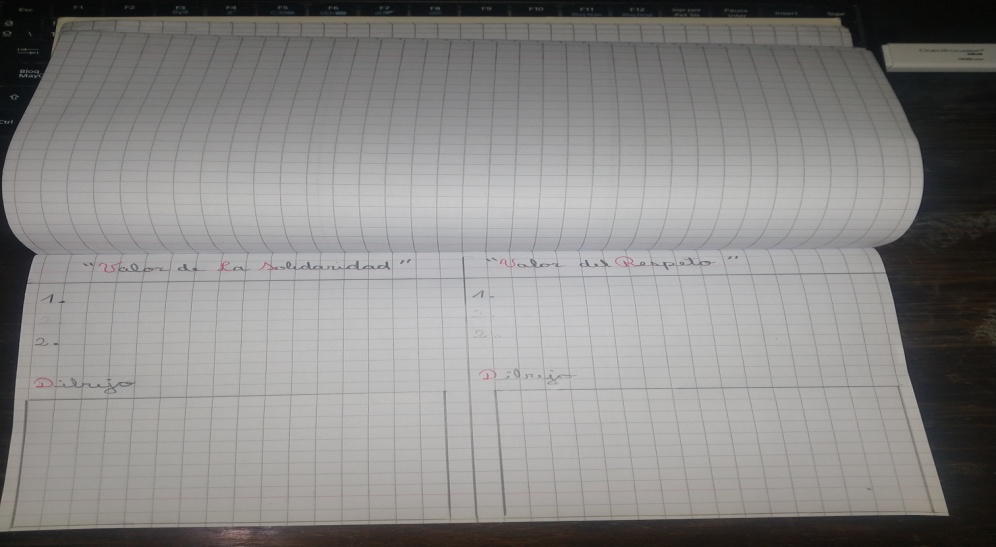 Esc F1 F2 F3 F4 F5 F6 F7 F8 F9 F10 F11 F12 Impr pant Pet Sis Pausa Inter Insert Supr
Bloq
Mayús
Ctrl
"Valor de La Solidaridad"
1.
2.
Dibujo
"Valor del Respeto"
1.
2.
2.
Dibujo